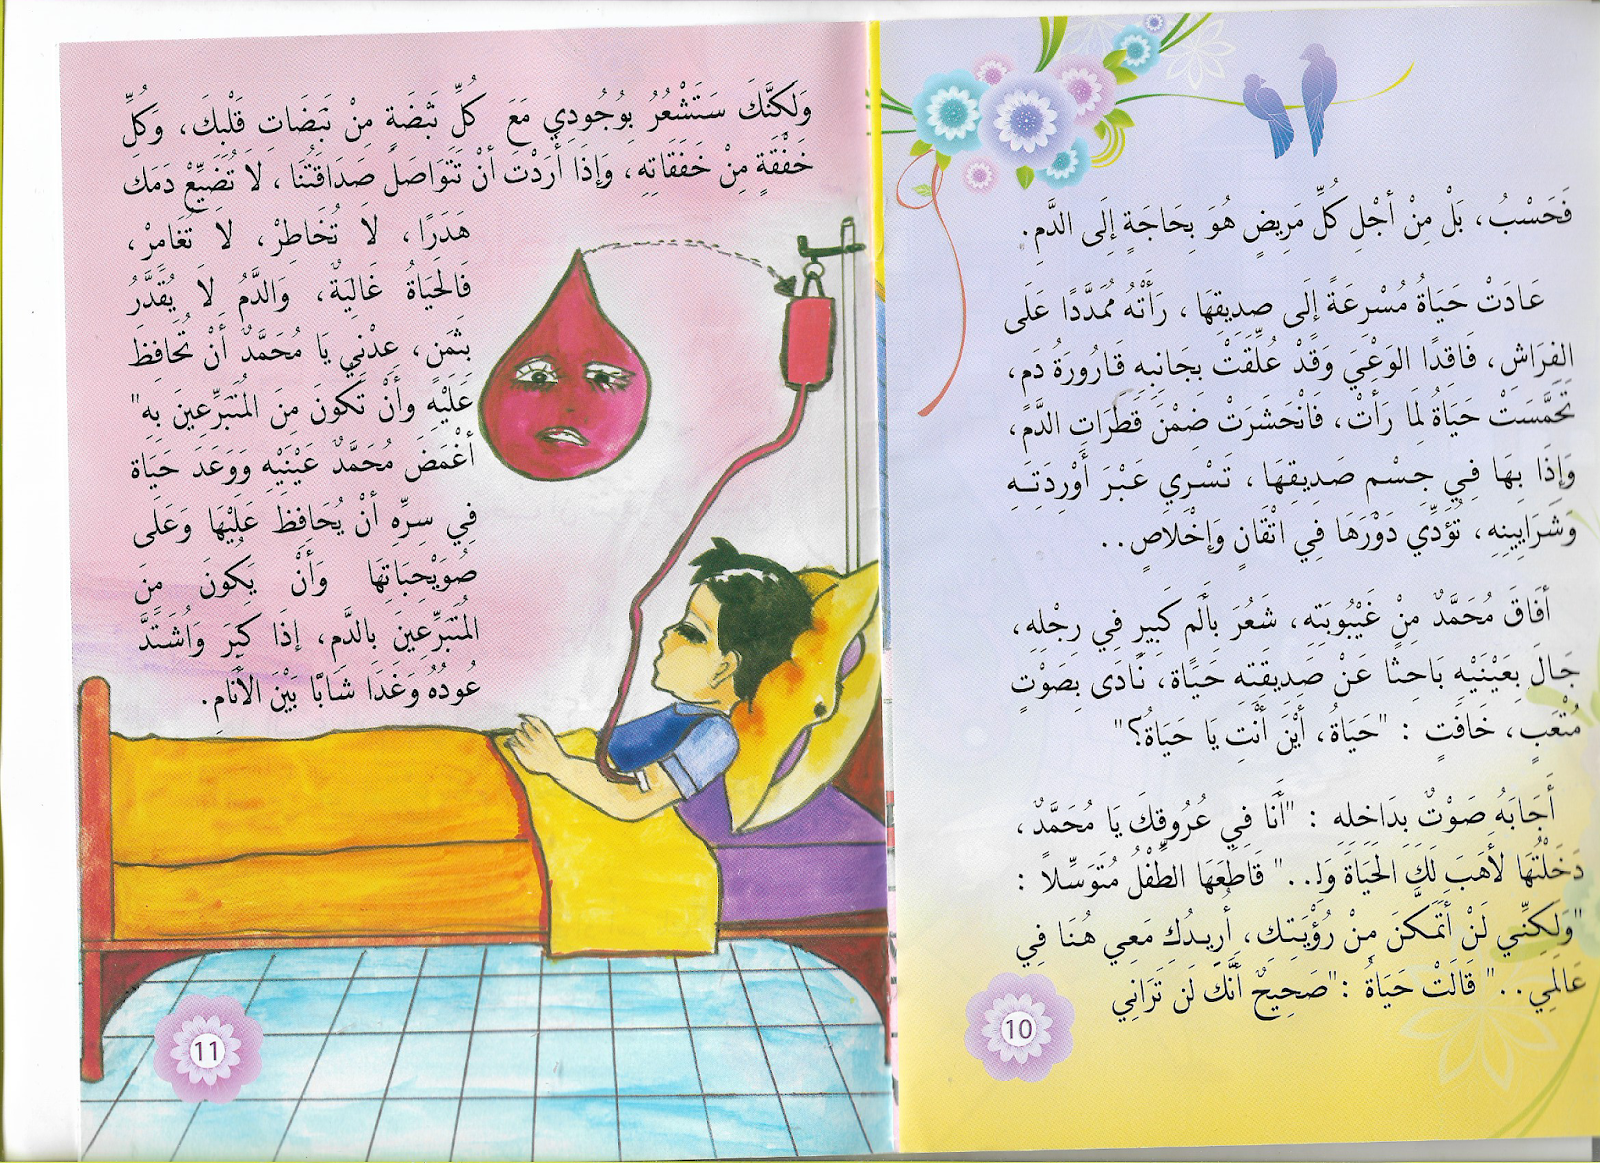 فَحَسْبُ، بَلْ مِنْ أَجْلِ كُلِّ مَرِيضٍ هُوَ بِحَاجَةٍ إِلَى الدَّمِ.
عَادَتْ حَيَاةُ مُسْرِعَةً إِلَى صديِقِهَا، رَأَتْهُ مُمَدَّدًا عَلَى
الفِرَاشِ، فَاقِدًا الوَعْيَ وَقَدْ عُلِّقَتْ بِجَانِبِهِ قَارُورَةُ دَمٍ،
تَحَمَّسَتْ حَيَاةُ لِمَا رَأَتْ، فَانْحَشَرَتْ ضِمْنَ قَطَرَاتِ الدَّمِ،
وَإِذَا بِهَا فِي جِسْمِ صَدِيقِهَا، تَسْرِي عَبْرَ أَوْرِدَتِهِ
وَشَرَايِينِهِ، تُؤَدِّي دَوْرَهَا فِي اتْقَانٍ وَإِخْلَاصٍ..
أَفَاقَ مُحَمَّدٌ مِنْ غَيْبُوبَتِهِ، شَعُرَ بِأَلَمٍ كَبِيرٍ فِي رِجْلِهِ،
جَالَ بِعَيْنَيْهِ بَاحِثًا عَنْ صَدِيقَتِهِ حَيَاة، نَادَى بِصَوْتٍ
مُتْعَبٍ، خَافَتٍ : "حَيَاةُ، أَيْنَ أَنْتِ يَا حَيَاةُ؟"
أَجَابَهُ صَوْتٌ بِدَاخِلِهِ : "أَنَا فِي عُرُوقِكَ يَا مُحَمَّدٌ،
دَخَلْتُهَا لأَهَبَ لَكَ الحَيَاةَ وَلِـ.." قَاطَعَهَا الطِّفْلُ مُتَوَسِّلاً :
"وَلَكِنِّي لَنْ أَتَمَكَّنَ مِنْ رُؤْيَتِكِ، أُرِيدُكِ مَعِي هُنَا فِي
عَالَمِي.." قَالَتْ حَيَاةُ : "صَحِيحٌ أَنَّكَ لَن تَرَانِي
10
وَلَكِنَّكَ سَتَشْعُرُ بِوُجُودِي مَعَ كُلِّ نَبْضَةٍ مِنْ نَبَضَاتِ قَلْبِكَ، وَكُلِّ
خَفْقَةٍ مِنْ خَفَقَاتِهِ، وَإِذَا أَرَدْتَ أَنْ تَتَوَاصَلَ صَدَاقَتُنَا، لاَ تُضَيِّعْ دَمَكَ
هَدَرًا، لاَ تُخَاطِرْ، لاَ تُغَامِرْ،
فَالحَيَاةُ غَالِيَةٌ، وَالدَّمُ لاَ يُقَدَّرُ
بِثَمَنٍ، عِدْنِي يَا مُحَمَّدٌ أَنْ تُحَافِظَ
عَلَيْهِ وَأَنْ تَكُونَ مِنَ المُتَبَرِّعِينَ بِهِ"
أَغْمَضَ مُحَمَّدٌ عَيْنَيْهِ وَوَعَدَ حَيَاة
فِي سِرِّهِ أَنْ يُحَافِظَ عَلَيْهَا وَعَلَى
صُوَيْحِبَاتِهَا وَأَنْ يَكُونَ مِنَ
المُتَبَرِّعِينَ بِالدَّمِ، إِذَا كَبِرَ وَاشْتَدَّ
عُودُهُ وَغَدَا شَابًّا بَيْنَ الأَنَامِ.
11